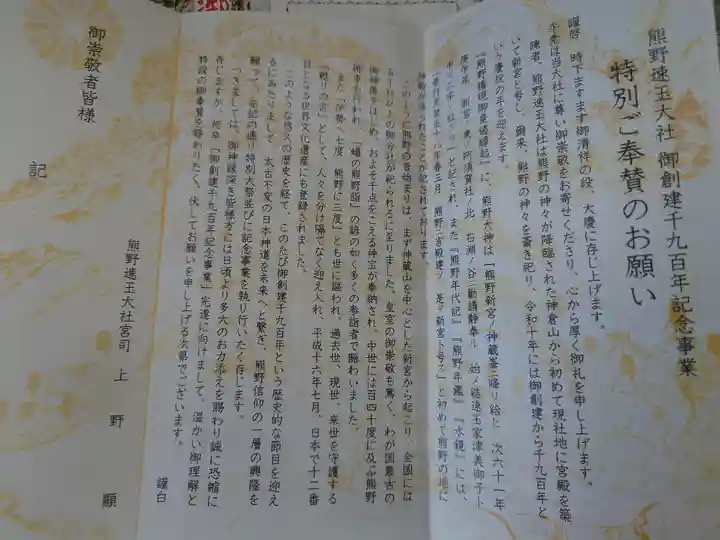 熊野速玉大社 御創建千九百年記念事業
特別ご奉賛のお願い
謹啓 時下ますます御清祥の段、大慶に存じ上げます。
平素は当大社に尊い御崇敬をお寄せくださり、心から厚く御礼を申し上げます。
陳者、熊野速玉大社は熊野の神々が降臨された神倉山から初めて現社地に宮殿を築
いて新宮と号し、爾来、熊野の神々を斎き祀り、令和十年には御創建から千九百年と
いう慶祝の年を迎えます。
『熊野権現御垂迹縁起』に、熊野大神は「熊野新宮ノ神蔵峯ニ降リ給ヒ 次六十一年
庚午年 新宮ノ東ノ阿須賀社ノ北 石淵ノ谷ニ勧請静奉ル 始メ結速玉家津美御子ト
」と記され、また『熊野年代記』『熊野年鑑』『水鏡』には、
「景行天皇五十八年春三月 熊野ニ宮殿建ツ 是ヲ新宮ト号ス」と初めて熊野の地に
神殿が造られたことが記されております。
このように熊野の音始まりは、まず神蔵山を中心とした新宮から起こり、全国には
五千社以上の御分社が祀られるに至りました。皇室の御崇敬も篤く、わが国最古の
御神像をはじめ、およそ千点をこえる神宝が奉納され、中世には百四十度に及ぶ熊野
御幸も行われ、「蟻の熊野詣」の諺の如く多くの参詣者で賑わいました。
また「伊勢へ七度 熊野に三度」とも世に謳われ、過去世、現世、来世を守護する
「甦りの宮」として、人々を分け隔てなく迎え入れ、平成十六年七月、日本で十二番
目となる世界文化遺産にも登録されました。
このような悠久の歴史を経て、このたび御創建千九百年という歴史的な節目を迎え
るにあたりまして、太古不変の日本神道を未来へと繋ぎ、熊野信仰の一層の興隆を
願って、左記の通り特別大祭並びに記念事業を執り行いたく存じます。
つきましては、御神縁深き皆様方には日頃より多大のお力添えを賜わり誠に恐縮に
存じますが、何卒「御創建千九百年記念事業」完遂に向けまして、温かい御理解と
特段の御奉賛を賜わりたく、伏してお願いを申し上げる次第でございます。
謹白
熊野速玉大社宮司 上野 顯
御崇敬者皆様
記